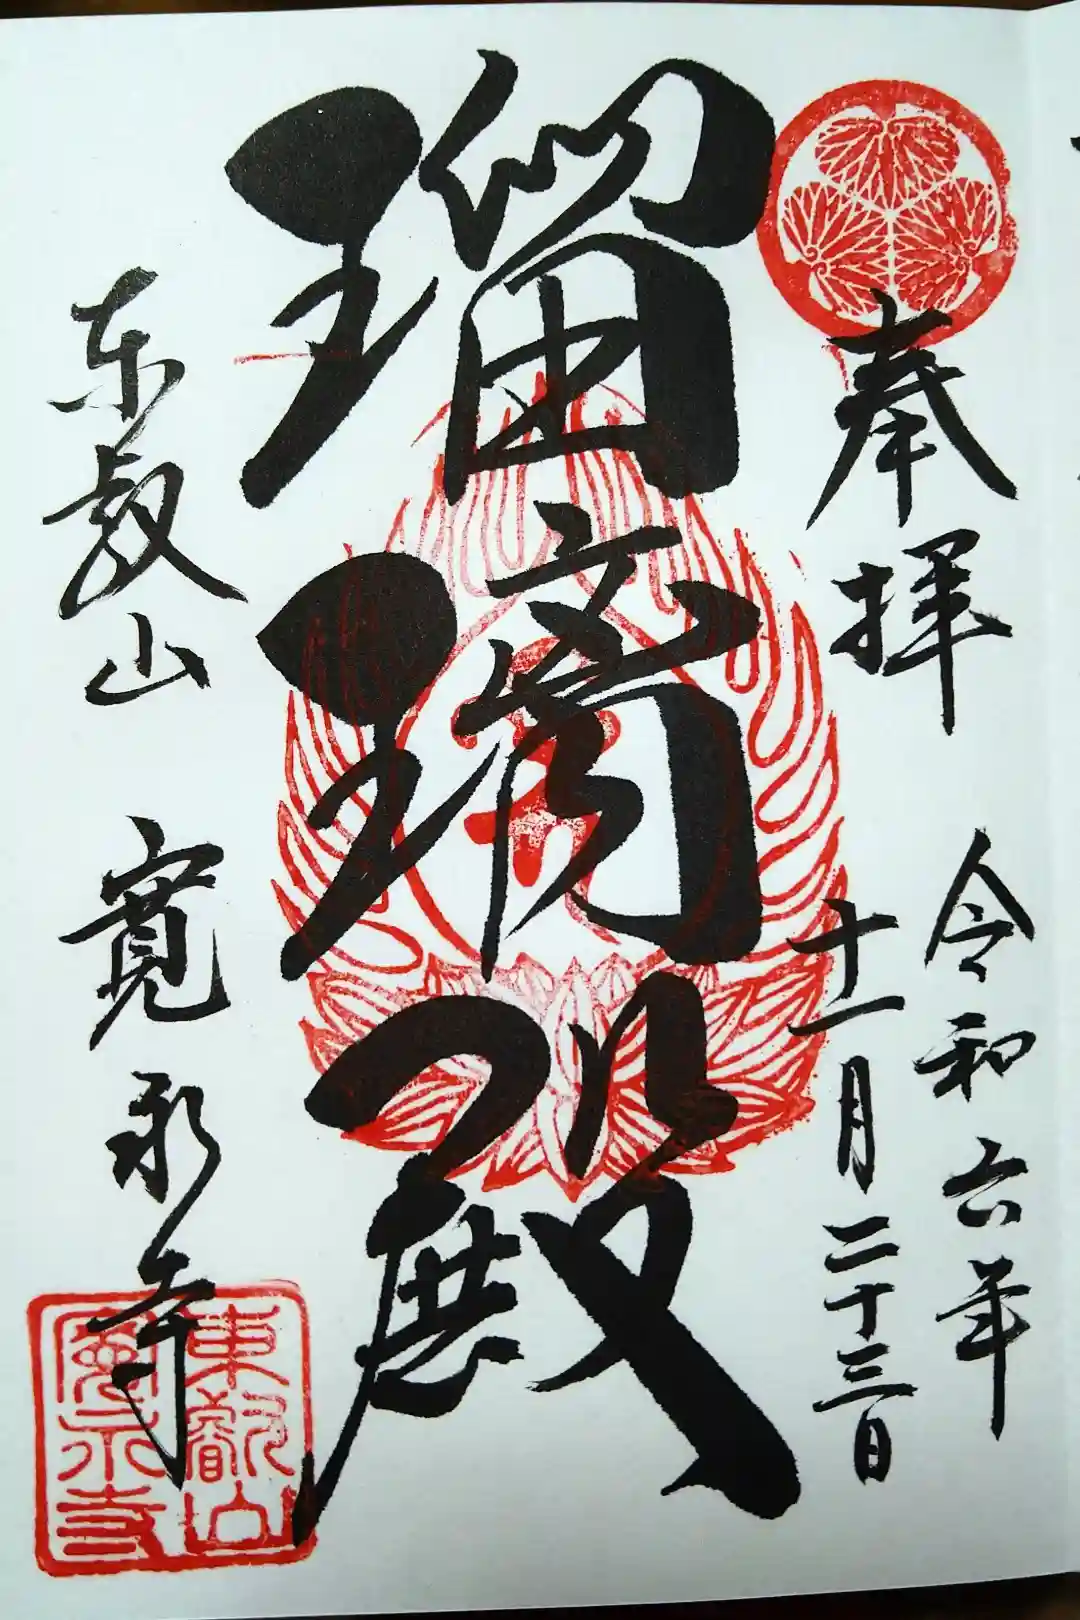 奉拝
令和六年
十一月二十三日
瑠璃殿
東叡山 寛永寺
東叡山
寛永寺